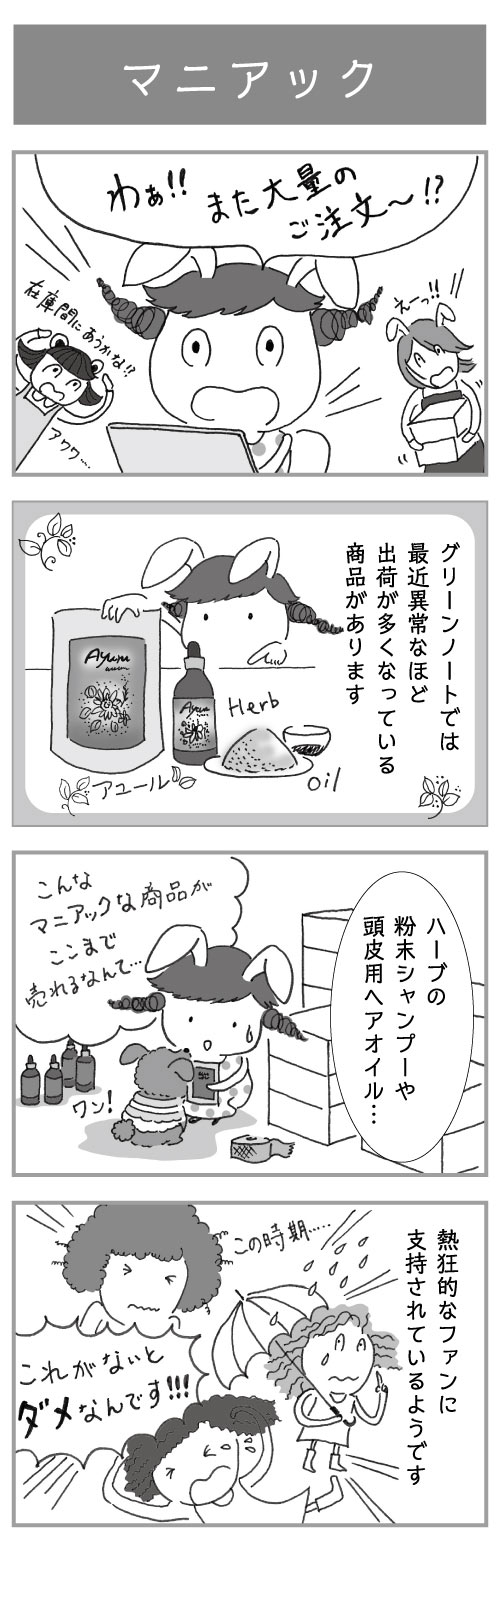 マニアック
わぁ!!
また大量の
ご注文〜!?
えーっ!!
在庫間にあうかな!?
アワワ…
グリーンノートでは
最近異常なほど
出荷が多くなっている
商品があります
Ayuru
Ayuru
Herb
oil
アユール
ハーブの
粉末シャンプーや
頭皮用ヘアオイル…
こんな
マニアックな商品が
ここまで
売れるなんて…
ワン!
熱狂的なファンに
支持されているようです
この時期……
これがないと
ダメなんです!!!